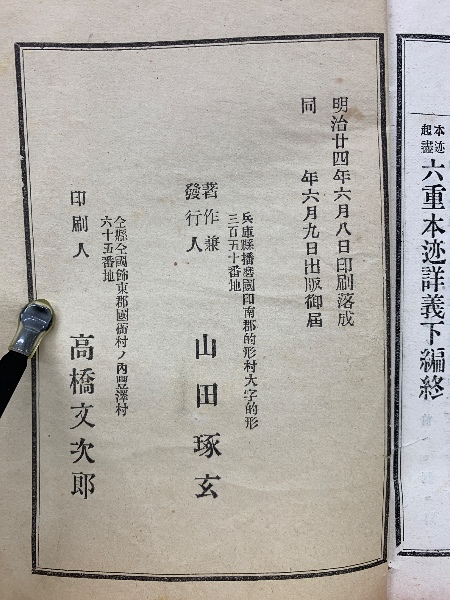 本迹
起盡
六重本迹詳義下編終
明治廿四年六月八日印刷落成
同 年六月九日出版御屆
兵庫縣播磨國印南郡的形村大字的形
三百五十番地
著作兼
發行人
山田琢玄
仝縣仝國飾東郡國衙村ノ內豐澤村
六十五番地
印刷人
高橋文次郎